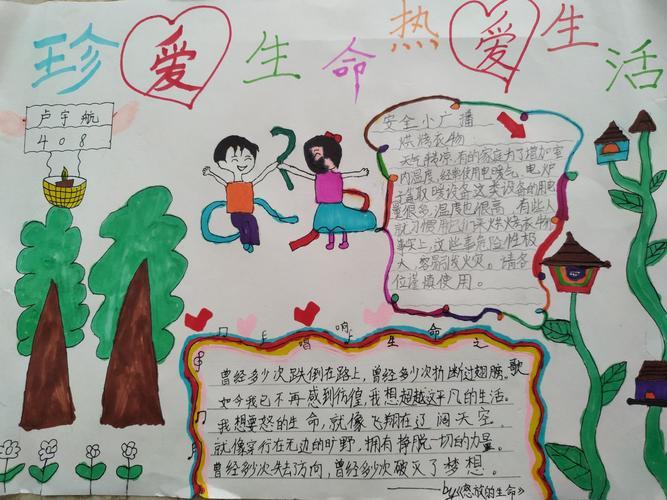 珍爱生命 热爱生活
卢宇航
408
安全小广播
烘烤衣物:
天气转凉,有的家庭为了增加室
内温度,经常使用电暖气,电炉
子等取暖设备,这类设备的用电
量很多,温度也很高,有些人
就习惯用它们来烘烤衣物,
事实上,这些事危险性极
大,容易引发火灾。请各
位谨慎使用。
唱响生命之歌
曾经多少次跌倒在路上,曾经多少次折断过翅膀。
如今我已不再感到彷徨,我想超越这平凡的生活。
我想要怒的生命,就像飞翔在辽阔天空,
就像穿行在无边的旷野,拥有挣脱一切的力量。
曾经多少次失去方向,曾经多少次破灭了梦想。
——by《怒放的生命》